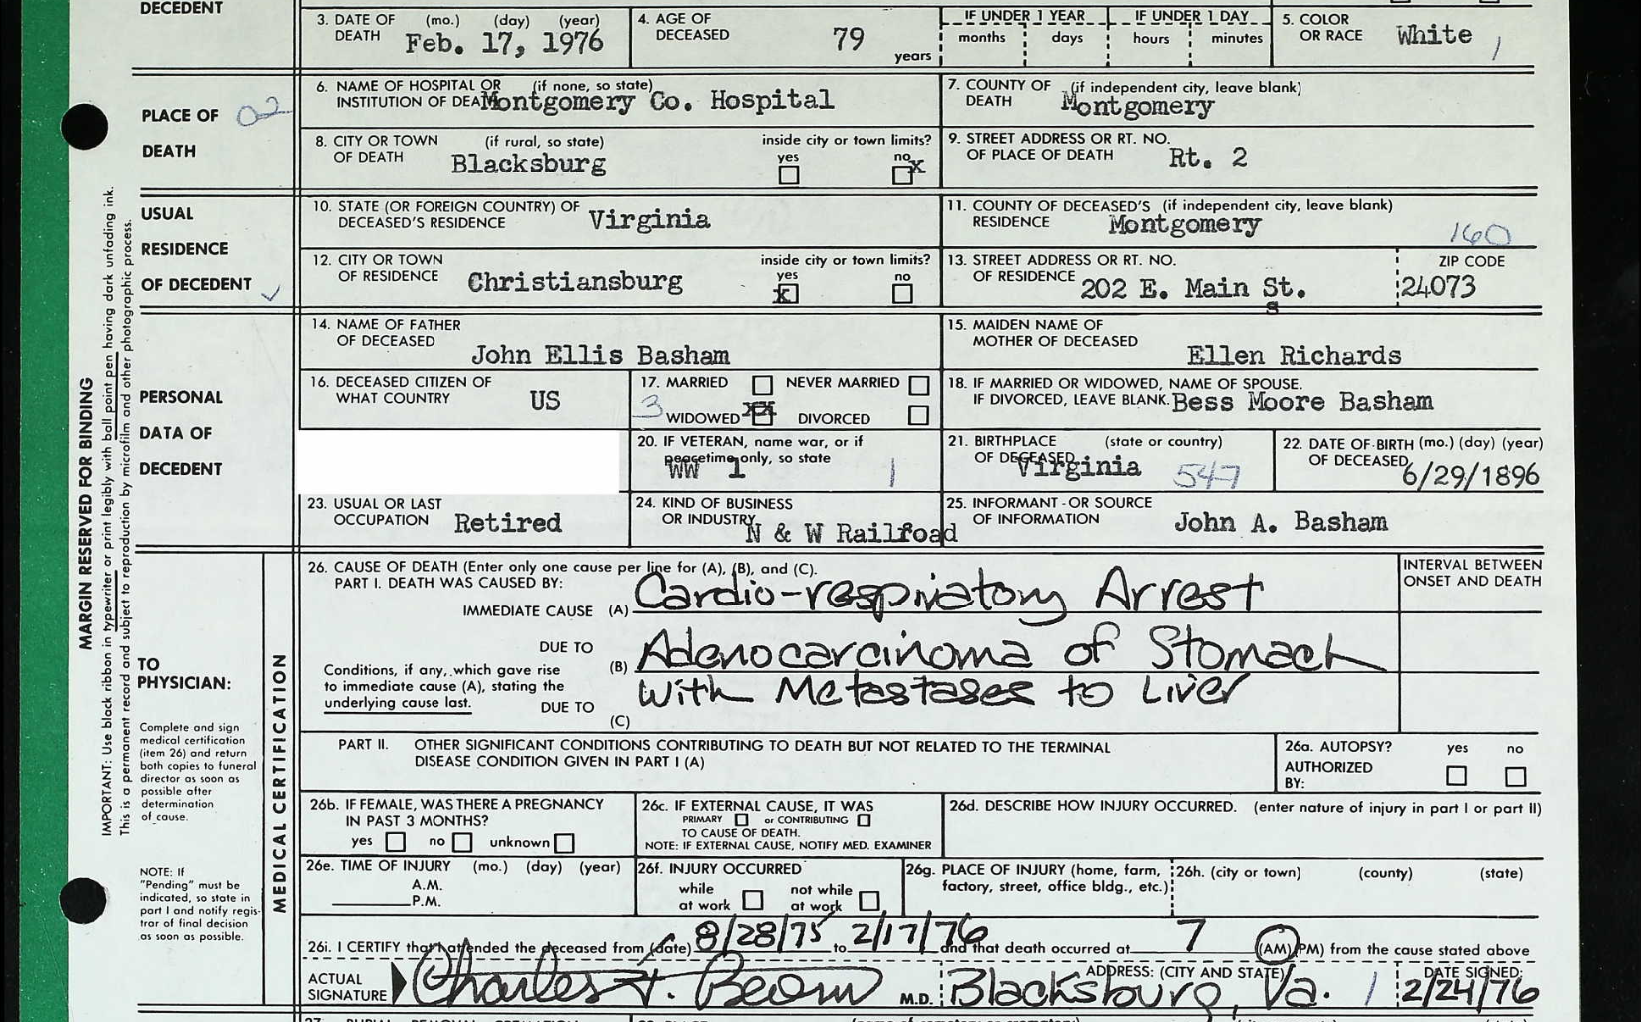 DECEDENT
3. DATE OF DEATH (mo.) (day) (year) Feb. 17, 1976
4. AGE OF DECEASED 79 years
IF UNDER 1 YEAR months days
IF UNDER 1 DAY hours minutes
5. COLOR OR RACE White
PLACE OF DEATH 02
6. NAME OF HOSPITAL OR (if none, so state) INSTITUTION OF DEA Montgomery Co. Hospital
7. COUNTY OF DEATH (if independent city, leave blank) Montgomery
8. CITY OR TOWN OF DEATH (if rural, so state) Blacksburg
inside city or town limits? yes no x
9. STREET ADDRESS OR RT. NO. OF PLACE OF DEATH Rt. 2
USUAL RESIDENCE OF DECEDENT ✓
10. STATE (OR FOREIGN COUNTRY) OF DECEASED'S RESIDENCE Virginia
11. COUNTY OF DECEASED'S RESIDENCE (if independent city, leave blank) Montgomery 160
12. CITY OR TOWN OF RESIDENCE Christiansburg
inside city or town limits? yes x no
13. STREET ADDRESS OR RT. NO. OF RESIDENCE 202 E. Main St. s
ZIP CODE 24073
PERSONAL DATA OF DECEDENT
14. NAME OF FATHER OF DECEASED John Ellis Basham
15. MAIDEN NAME OF MOTHER OF DECEASED Ellen Richards
16. DECEASED CITIZEN OF WHAT COUNTRY US
17. MARRIED NEVER MARRIED
3 WIDOWED DIVORCED
18. IF MARRIED OR WIDOWED, NAME OF SPOUSE. IF DIVORCED, LEAVE BLANK. Bess Moore Basham
20. IF VETERAN, name war, or if peacetime only, so state WW 1 1
21. BIRTHPLACE (state or country) OF DECEASED Virginia 547
22. DATE OF BIRTH (mo.) (day) (year) OF DECEASED 6/29/1896
23. USUAL OR LAST OCCUPATION Retired
24. KIND OF BUSINESS OR INDUSTRY N & W Railroad
25. INFORMANT - OR SOURCE OF INFORMATION John A. Basham
MARGIN RESERVED FOR BINDING
IMPORTANT: Use black ribbon in typewriter or print legibly with ball point pen having dark unfading ink.
This is a permanent record and subject to reproduction by microfilm and other photographic process.
TO PHYSICIAN:
Complete and sign
medical certification
(item 26) and return
both copies to funeral
director as soon as
possible after
determination
of cause.
NOTE: If
"Pending" must be
indicated, so state in
part I and notify regis-
trar of final decision
as soon as possible.
MEDICAL CERTIFICATION
26. CAUSE OF DEATH (Enter only one cause per line for (A), (B), and (C).
INTERVAL BETWEEN ONSET AND DEATH
PART I. DEATH WAS CAUSED BY:
IMMEDIATE CAUSE (A) Cardio-respiratory Arrest
DUE TO
(B) Adenocarcinoma of Stomach
Conditions, if any, which gave rise to immediate cause (A), stating the underlying cause last.
with Metastases to Liver
DUE TO
(C)
PART II. OTHER SIGNIFICANT CONDITIONS CONTRIBUTING TO DEATH BUT NOT RELATED TO THE TERMINAL
DISEASE CONDITION GIVEN IN PART I (A)
26a. AUTOPSY? yes no
AUTHORIZED BY:
26b. IF FEMALE, WAS THERE A PREGNANCY IN PAST 3 MONTHS?
yes no unknown
26c. IF EXTERNAL CAUSE, IT WAS
PRIMARY or CONTRIBUTING
TO CAUSE OF DEATH.
NOTE: IF EXTERNAL CAUSE, NOTIFY MED. EXAMINER
26d. DESCRIBE HOW INJURY OCCURRED. (enter nature of injury in part I or part II)
26e. TIME OF INJURY (mo.) (day) (year)
A.M.
P.M.
26f. INJURY OCCURRED
while at work not while at work
26g. PLACE OF INJURY (home, farm, factory, street, office bldg., etc.)
26h. (city or town) (county) (state)
26i. I CERTIFY that I attended the deceased from (date) 8/28/75 to 2/17/76 and that death occurred at 7 (AM) PM) from the cause stated above
ACTUAL SIGNATURE Charles M.D.
ADDRESS: (CITY AND STATE) Blacksburg, Va. 1
DATE SIGNED: 2/24/76